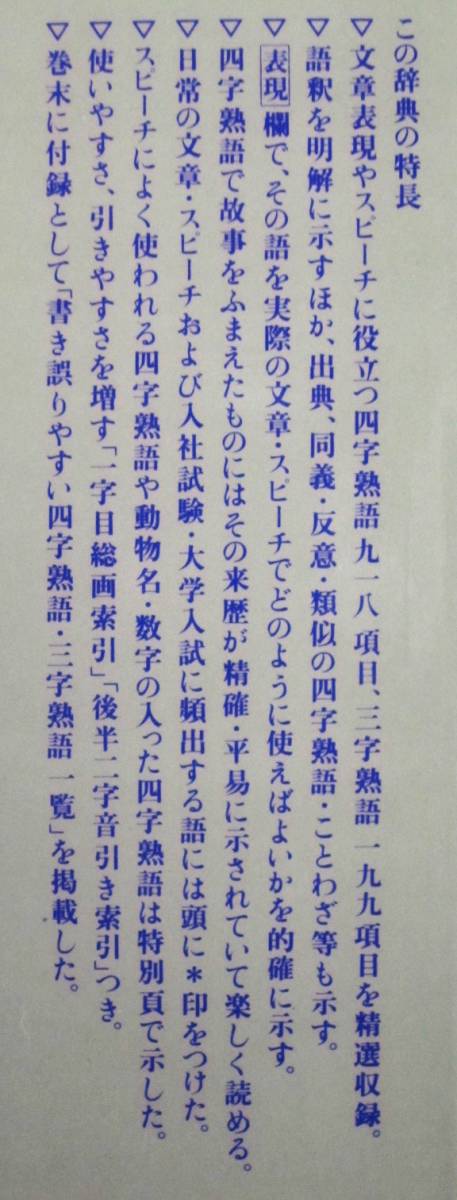 この辞典の特長
▽文章表現やスピーチに役立つ四字熟語九一八項目、三字熟語一九九項目を精選収録。
▽語釈を明解に示すほか、出典、同義・反意・類似の四字熟語・ことわざ等も示す。
▽表現欄で、その語を実際の文章・スピーチでどのように使えばよいかを的確に示す。
▽四字熟語で故事をふまえたものにはその来歴が精確・平易に示されていて楽しく読める。
▽日常の文章・スピーチおよび入社試験・大学入試に頻出する語には頭に＊印をつけた。
▽スピーチによく使われる四字熟語や動物名・数字の入った四字熟語は特別頁で示した。
▽使いやすさ、引きやすさを増す「一字目総画索引」「後半二字音引き索引」つき。
▽巻末に付録として「書き誤りやすい四字熟語・三字熟語一覧」を掲載した。